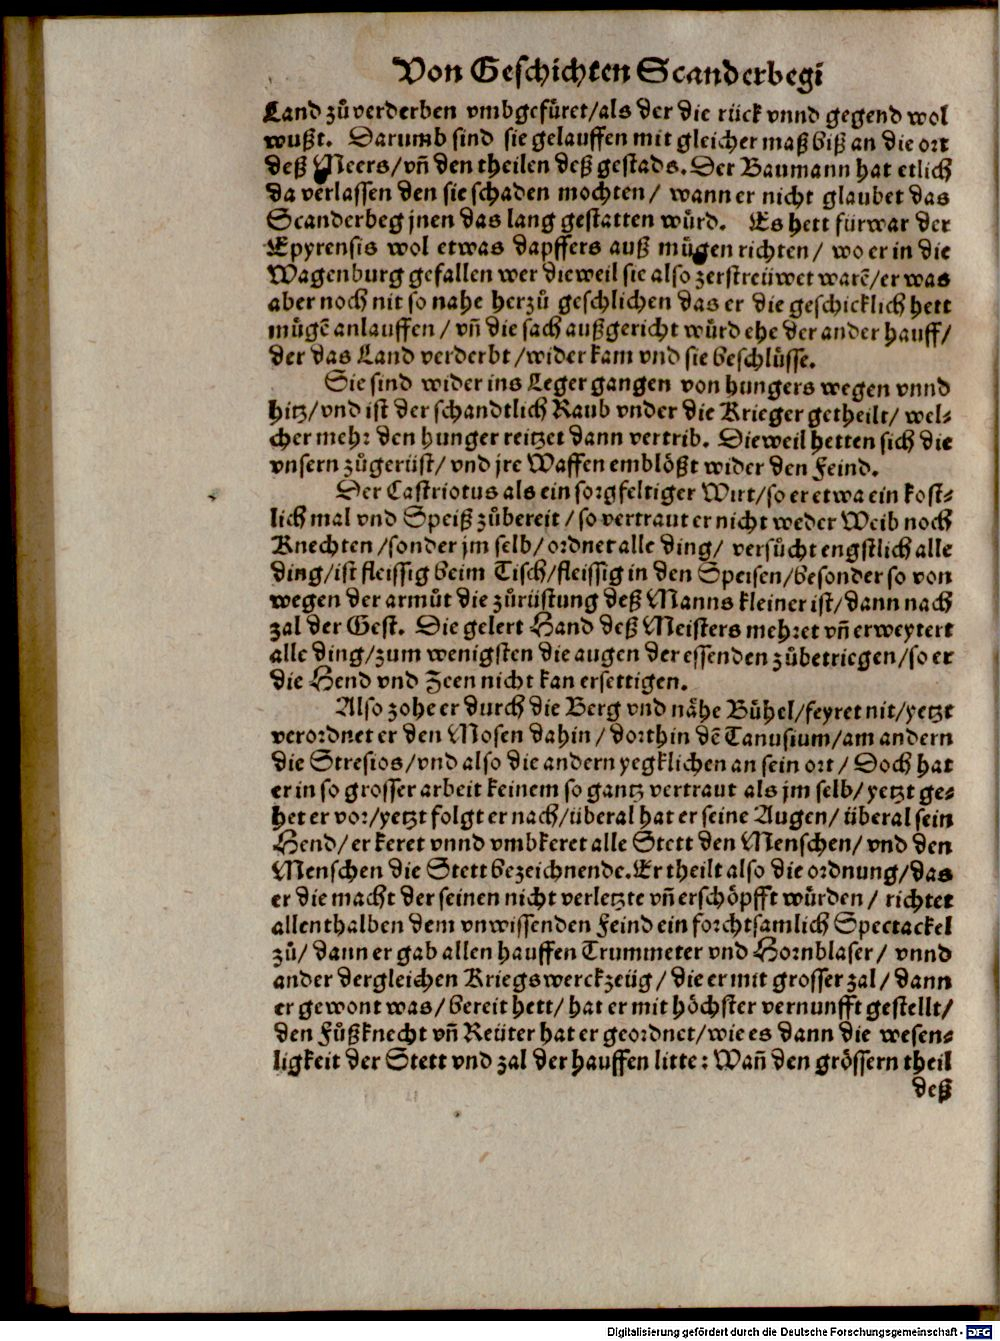 Von Geschichten Scanderbegi
Land zůverderben vmbgefüret/als der die rück vnnd gegend wol
wußt. Darumb sind sie gelauffen mit gleicher maß biß an die ort
deß Meers/vñ den theilen deß gestads. Der Baumann hat etlich
da verlassen den sie schaden mochten/ wann er nicht glaubet das
Scanderbeg jnen das lang gestatten würd. Es hett fürwar der
Epyrensis wol etwas dapffers auß mügen richten/ wo er in die
Wagenburg gefallen wer dieweil sie also zerstreüwet warẽ/er was
aber noch nit so nahe herzů geschlichen das er die geschicklich hett
mügẽ anlauffen/vñ die sach außgericht würd ehe der ander hauff/
der das Land verderbt/wider kam vnd sie beschlüsse.
Sie sind wider ins Leger gangen von hungers wegen vnnd
hitz/vnd ist der schandtlich Raub vnder die Krieger getheilt/ wel⸗
cher mehr den hunger reitzet dann vertrib. Dieweil hetten sich die
vnsern zůgerüst/ vnd jre Waffen emblößt wider den Feind.
Der Castriotus als ein sorgfeltiger Wirt/so er etwa ein kost⸗
lich mal vnd Speiß zůbereit/so vertraut er nicht weder Weib noch
Knechten/sonder jm selb/ordnet alle ding/ versůcht engstlich alle
ding/ist fleissig beim Tisch/fleissig in den Speisen/besonder so von
wegen der armůt die zůrüstung deß Manns kleiner ist/dann nach
zal der Gest. Die gelert Hand deß Meisters mehret vñ erweytert
alle ding/zum wenigsten die augen der essenden zůbetriegen/so er
die Hend vnd Zeen nicht kan ersettigen.
Also zohe er durch die Berg vnd nähe Bühel/feyret nit/yetzt
verordnet er den Mosen dahin/dorthin dẽ Tanusium/am andern
die Stresios/vnd also die andern yegklichen an sein ort/ Doch hat
er in so grosser arbeit keinem so gantz vertraut als jm selb/yetzt ge⸗
het er vor/yetzt folgt er nach/überal hat er seine Augen/überal sein
Hend/er keret vnnd vmbkeret alle Stett den Menschen/vnd den
Menschen die Stett bezeichnende. Er theilt also die ordnung/das
er die macht der seinen nicht verletzte vñ erschöpfft würden/ richtet
allenthalben dem vnwissenden Feind ein forchtsamlich Spectackel
zů/ dann er gab allen hauffen Trummeter vnd Hornblaser/ vnnd
ander dergleichen Kriegswerckzeüg/die er mit grosser zal/dann
er gewont was/bereit hett/hat er mit höchster vernunfft gestellt/
den Fůßknecht vñ Reüter hat er geordnet/wie es dann die wesen⸗
ligkeit der Stett vnd zal der hauffen litte: Wañ den grössern theil
deß
Digitalisierung gefördert durch die Deutsche Forschungsgemeinschaft - DFG